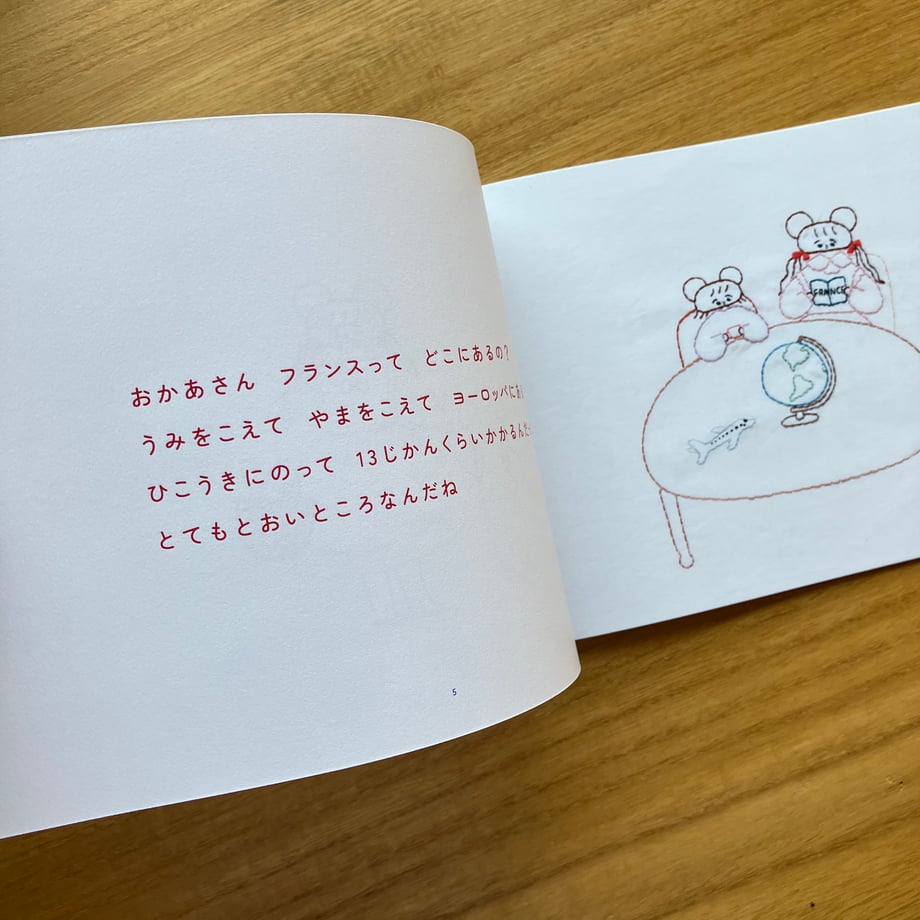 おかあさん　フランスって　どこにあるの?
うみをこえて　やまをこえて　ヨーロッパにあ
ひこうきにのって　13じかんくらいかかるんだ
とてもとおいところなんだね
5
FRANCE